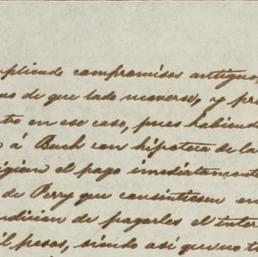 mpliendo compromisos antiguos,
de que lado moverse, y pre
en ese caso, pues habiendo
á Buch con hipoteca de la
igian el pago inmediatamente
de Perry que consintiesen en
ndicion de pagarles el inter
il pesos, siendo así que no t